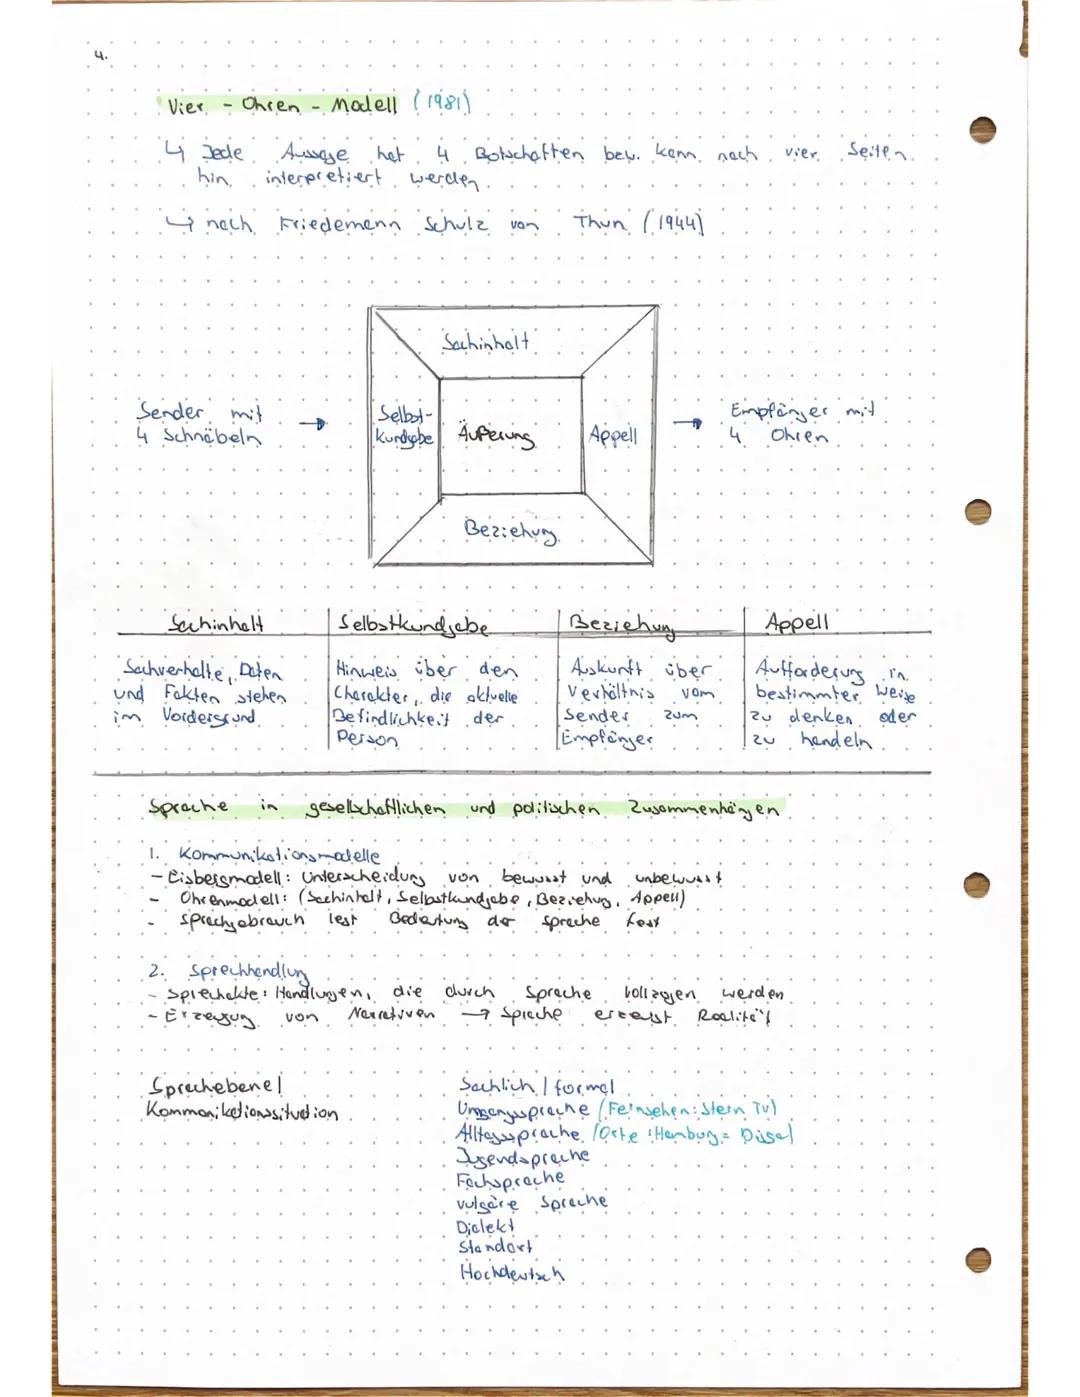 4.
Vier - Ohren - Modell (1981)
↳ Jede Aussage hat 4 Botschaften bzw. kann nach vier Seiten
hin interpretiert werden
↳ nach Friedemann Schulz von Thun (1944)
Sachinhalt
Sender mit
4 Schnäbeln
→
Selbst-
kundgabe
Äußerung
Appell
→
Empfänger mit
4 Ohren
Beziehung
Sachinhalt
Sachverhalte, Daten
und Fakten stehen
im Vordergrund
Selbstkundgabe
Hinweis über den
Charakter, die aktuelle
Befindlichkeit der
Person
Beziehung
Auskunft über
Verhältnis vom
Sender zum
Empfänger
Appell
Aufforderung in
bestimmter Weise
zu denken oder
zu handeln
Sprache in gesellschaftlichen und politischen Zusammenhängen
1. Kommunikationsmodelle
- Eisbergmodell: Unterscheidung von bewusst und unbewusst
- Ohrenmodell: (Sachinhalt, Selbstkundgabe, Beziehung, Appell)
- Sprachgebrauch legt Bedeutung der Sprache fest
2. Sprechhandlung
- Sprechakte: Handlungen, die durch Sprache vollzogen werden
- Erzeugung von Narrativen → Sprache erzeugt Realität
Sprachebene /
Kommunikationssituation
Sachlich / formal
Umgangssprache (Fernsehen: Stern TV)
Alltagssprache (Orte: Hamburg = Digga)
Jugendsprache
Fachsprache
vulgäre Sprache
Dialekt
Standort
Hochdeutsch